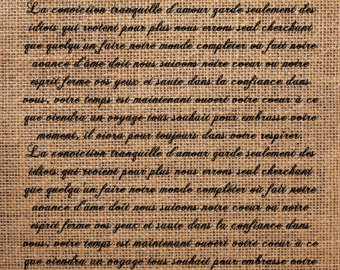 La conviction tranquille d'amour garde seulement des
idiots qui restent pour nous errons seul cherchant
que quelqu un faire notre monde compléter où fait notre
avance d'âme doit nous suivons notre coeur ou notre
esprit, ferme vos yeux et saute dans la confiance dans
vous, votre temps est maintenant ouvert votre coeur à ce
que viendra un voyage tous souhait pour embrasse votre
moment, il vivra pour toujours dans votre respirer.
La conviction tranquille d'amour garde seulement des
idiots qui restent pour nous errons seul cherchant
que quelqu un faire notre monde compléter où fait notre
avance d'âme doit nous suivons notre coeur ou notre
esprit, ferme vos yeux et saute dans la confiance dans
vous, votre temps est maintenant ouvert votre coeur à ce
que viendra un voyage tous souhait pour embrasse votre